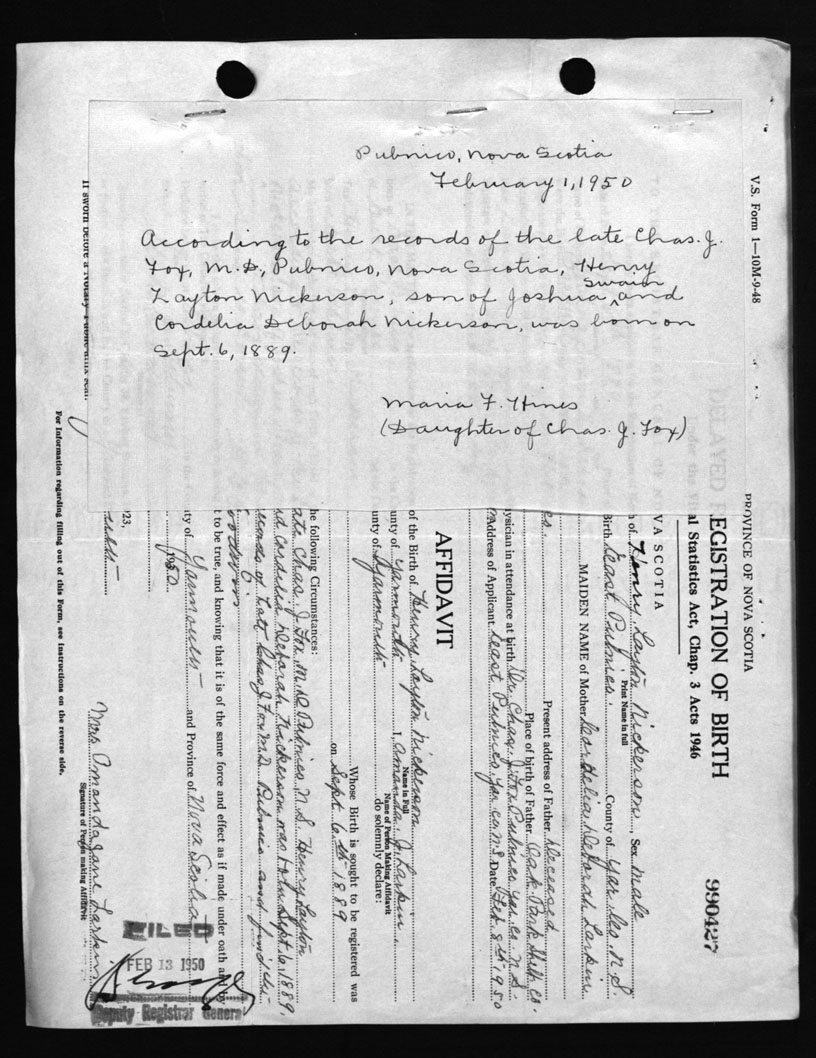 Pubnico, Nova Scotia
February 1, 1950
According to the records of the late Chas. J.
Fox, M.D., Pubnico, Nova Scotia, Henry
Layton Nickerson, son of Joshua Swain and
Cordelia Deborah Nickerson, was born on
Sept. 6, 1889.
Maria F. Hines
(Daughter of Chas. J. Fox)
V.S. Form 1—10M-9-48
PROVINCE OF NOVA SCOTIA
DELAYED REGISTRATION OF BIRTH
al Statistics Act, Chap. 3 Acts 1946
990427
VA SCOTIA
of Henry Layton Nickerson, Sex Male
Print Name in full
Birth East Pubnico. County of Yar Co. N.S.
MAIDEN NAME of Mother Cordelia Deborah Larkin
Present address of Father Deceased
Place of birth of Father Oak Park Shelb. Co.
ysician in attendance at birth Dr. Chas. J. Fox Pubnico Yar. Co. N.S.
Address of Applicant East Pubnico Yar. Co. N.S. Date Feb 8th 1950
AFFIDAVIT
of the Birth of Henry Layton Nickerson
Name in Full
unty of Yarmouth I, Amanda J Larkin,
Name of Person Making Affidavit
unty of Yarmouth do solemnly declare:
Whose Birth is sought to be registered was
on Sept 6th 1889
he following Circumstances:
late Chas. J Fox M.D Pubnico N.S. Henry Layton
nd Cordelia Deborah Nickerson was born Sept. 6, 1889.
ecords of Late Chas J Fox M.D. Pubnico and find
t to be true, and knowing that it is of the same force and effect as if made under oath and by
ty of Yarmouth and Province of Nova Scotia
1950.
Mrs Amanda Jane Larkin
Signature of Person making Affidavit
FILED
FEB 13 1950
Deputy Registrar General
If sworn before a Notary Public affix seal.
For Information regarding filling out of this Form, see Instructions on the reverse side.